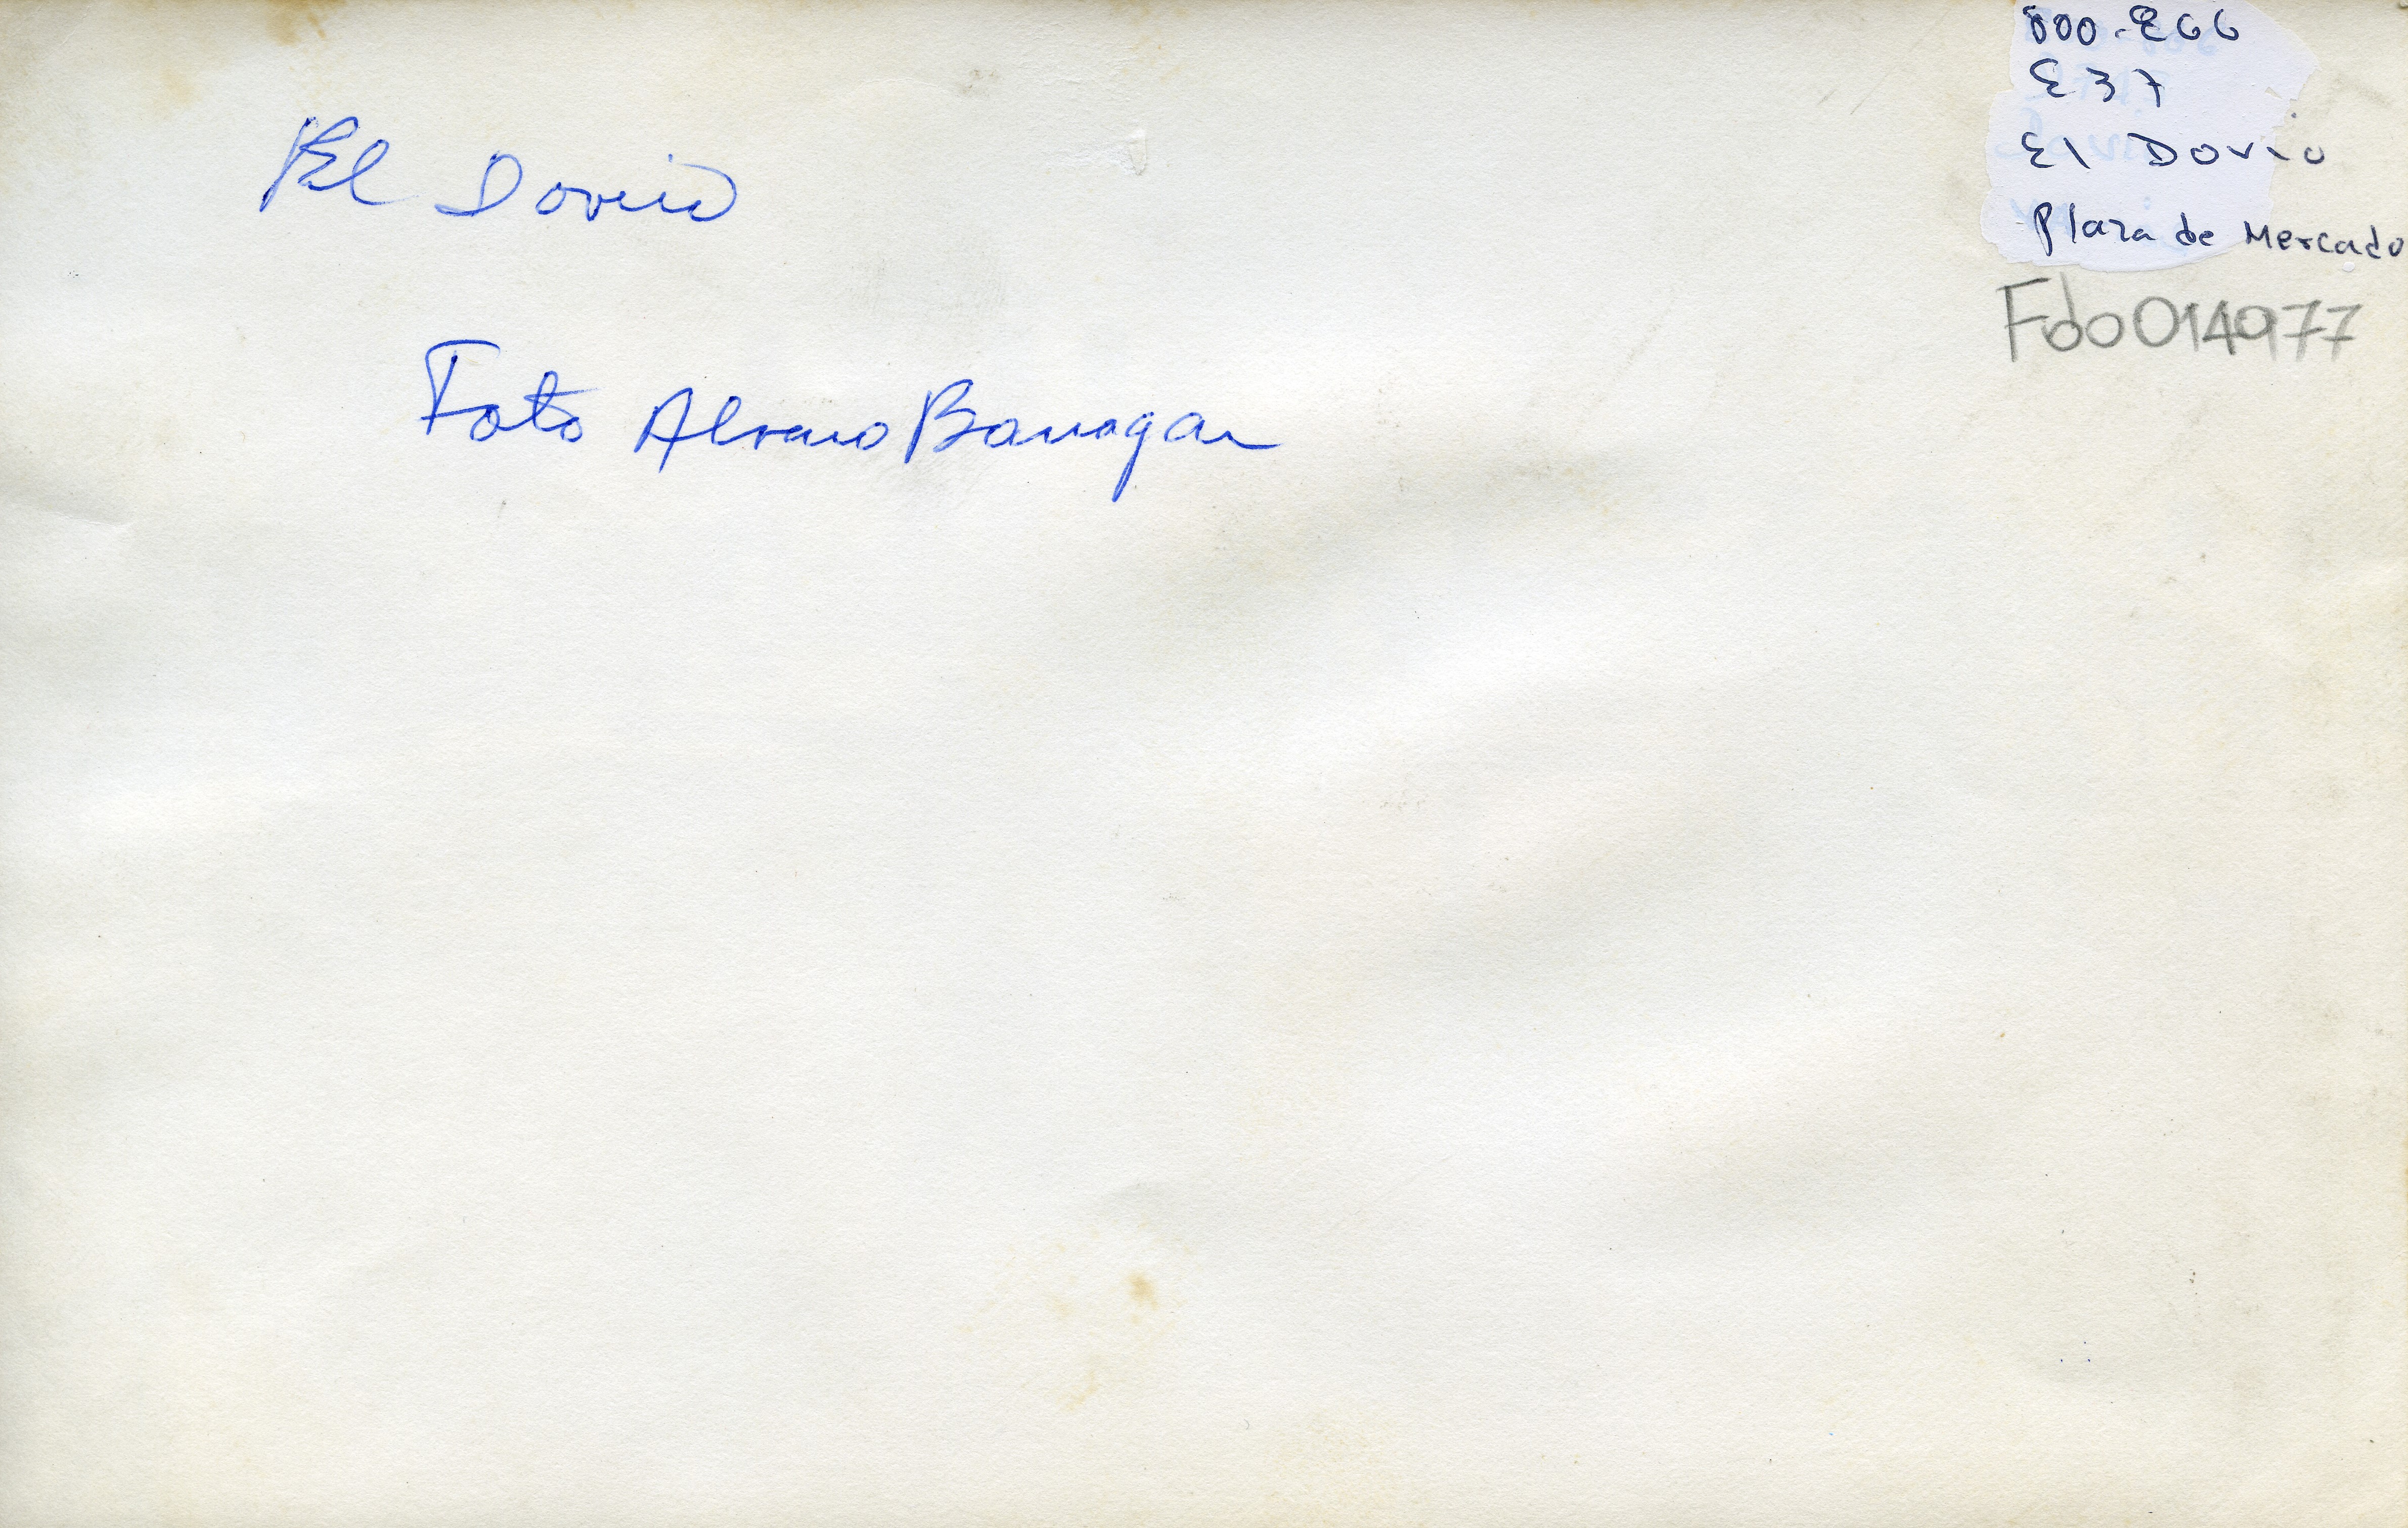 El Dovio
Foto Alvaro Barragan
E37
El Dovio
Plaza de Mercado
Fdo014977